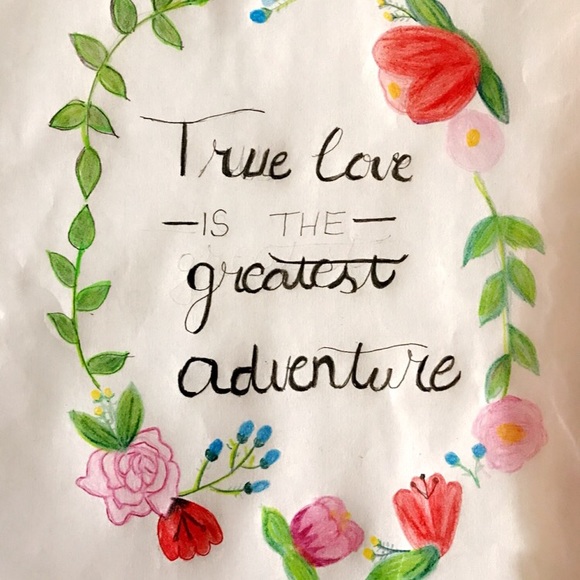 True love
—IS THE—
greatest
adventure